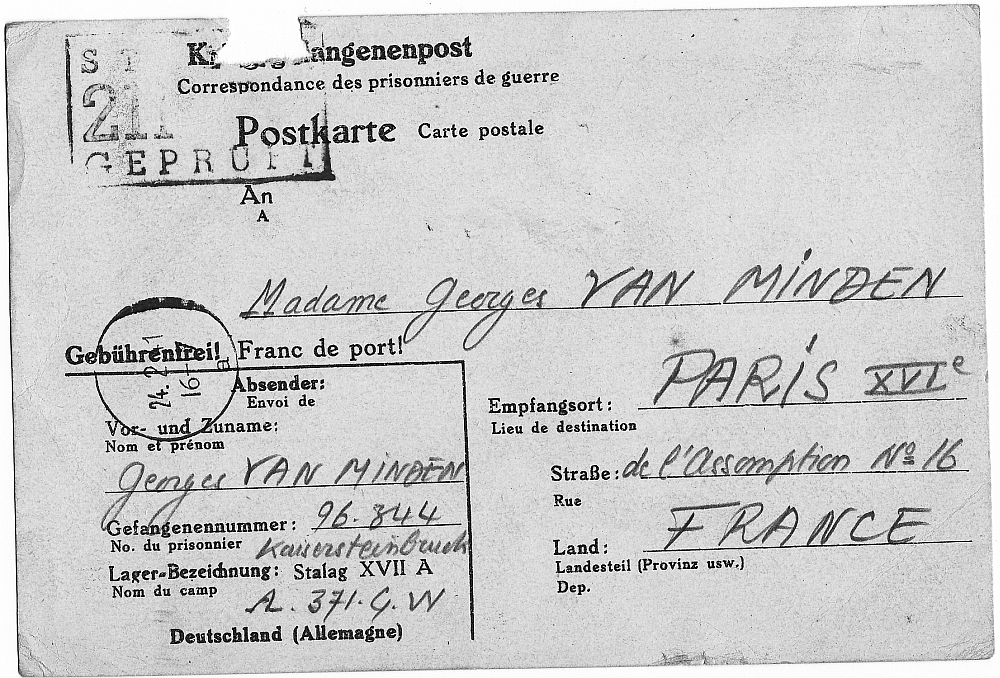 angenenpost
Correspondance des prisonniers de guerre
Postkarte Carte postale
GEPRÜFT
An
A
Madame Georges VAN MINDEN
Gebührenfrei! Franc de port!
24.2
16-
Absender:
Envoi de
Vor- und Zuname:
Nom et prénom
Georges VAN MINDEN
Gefangenennummer: 96.344
No. du prisonnier Kaisersteinbruck
Lager-Bezeichnung: Stalag XVII A
Nom du camp A. 371. G. W
Deutschland (Allemagne)
PARIS XVIe
Empfangsort:
Lieu de destination
Straße: de l'Assomption No 16
Rue
FRANCE
Land:
Landesteil (Provinz usw.)
Dep.